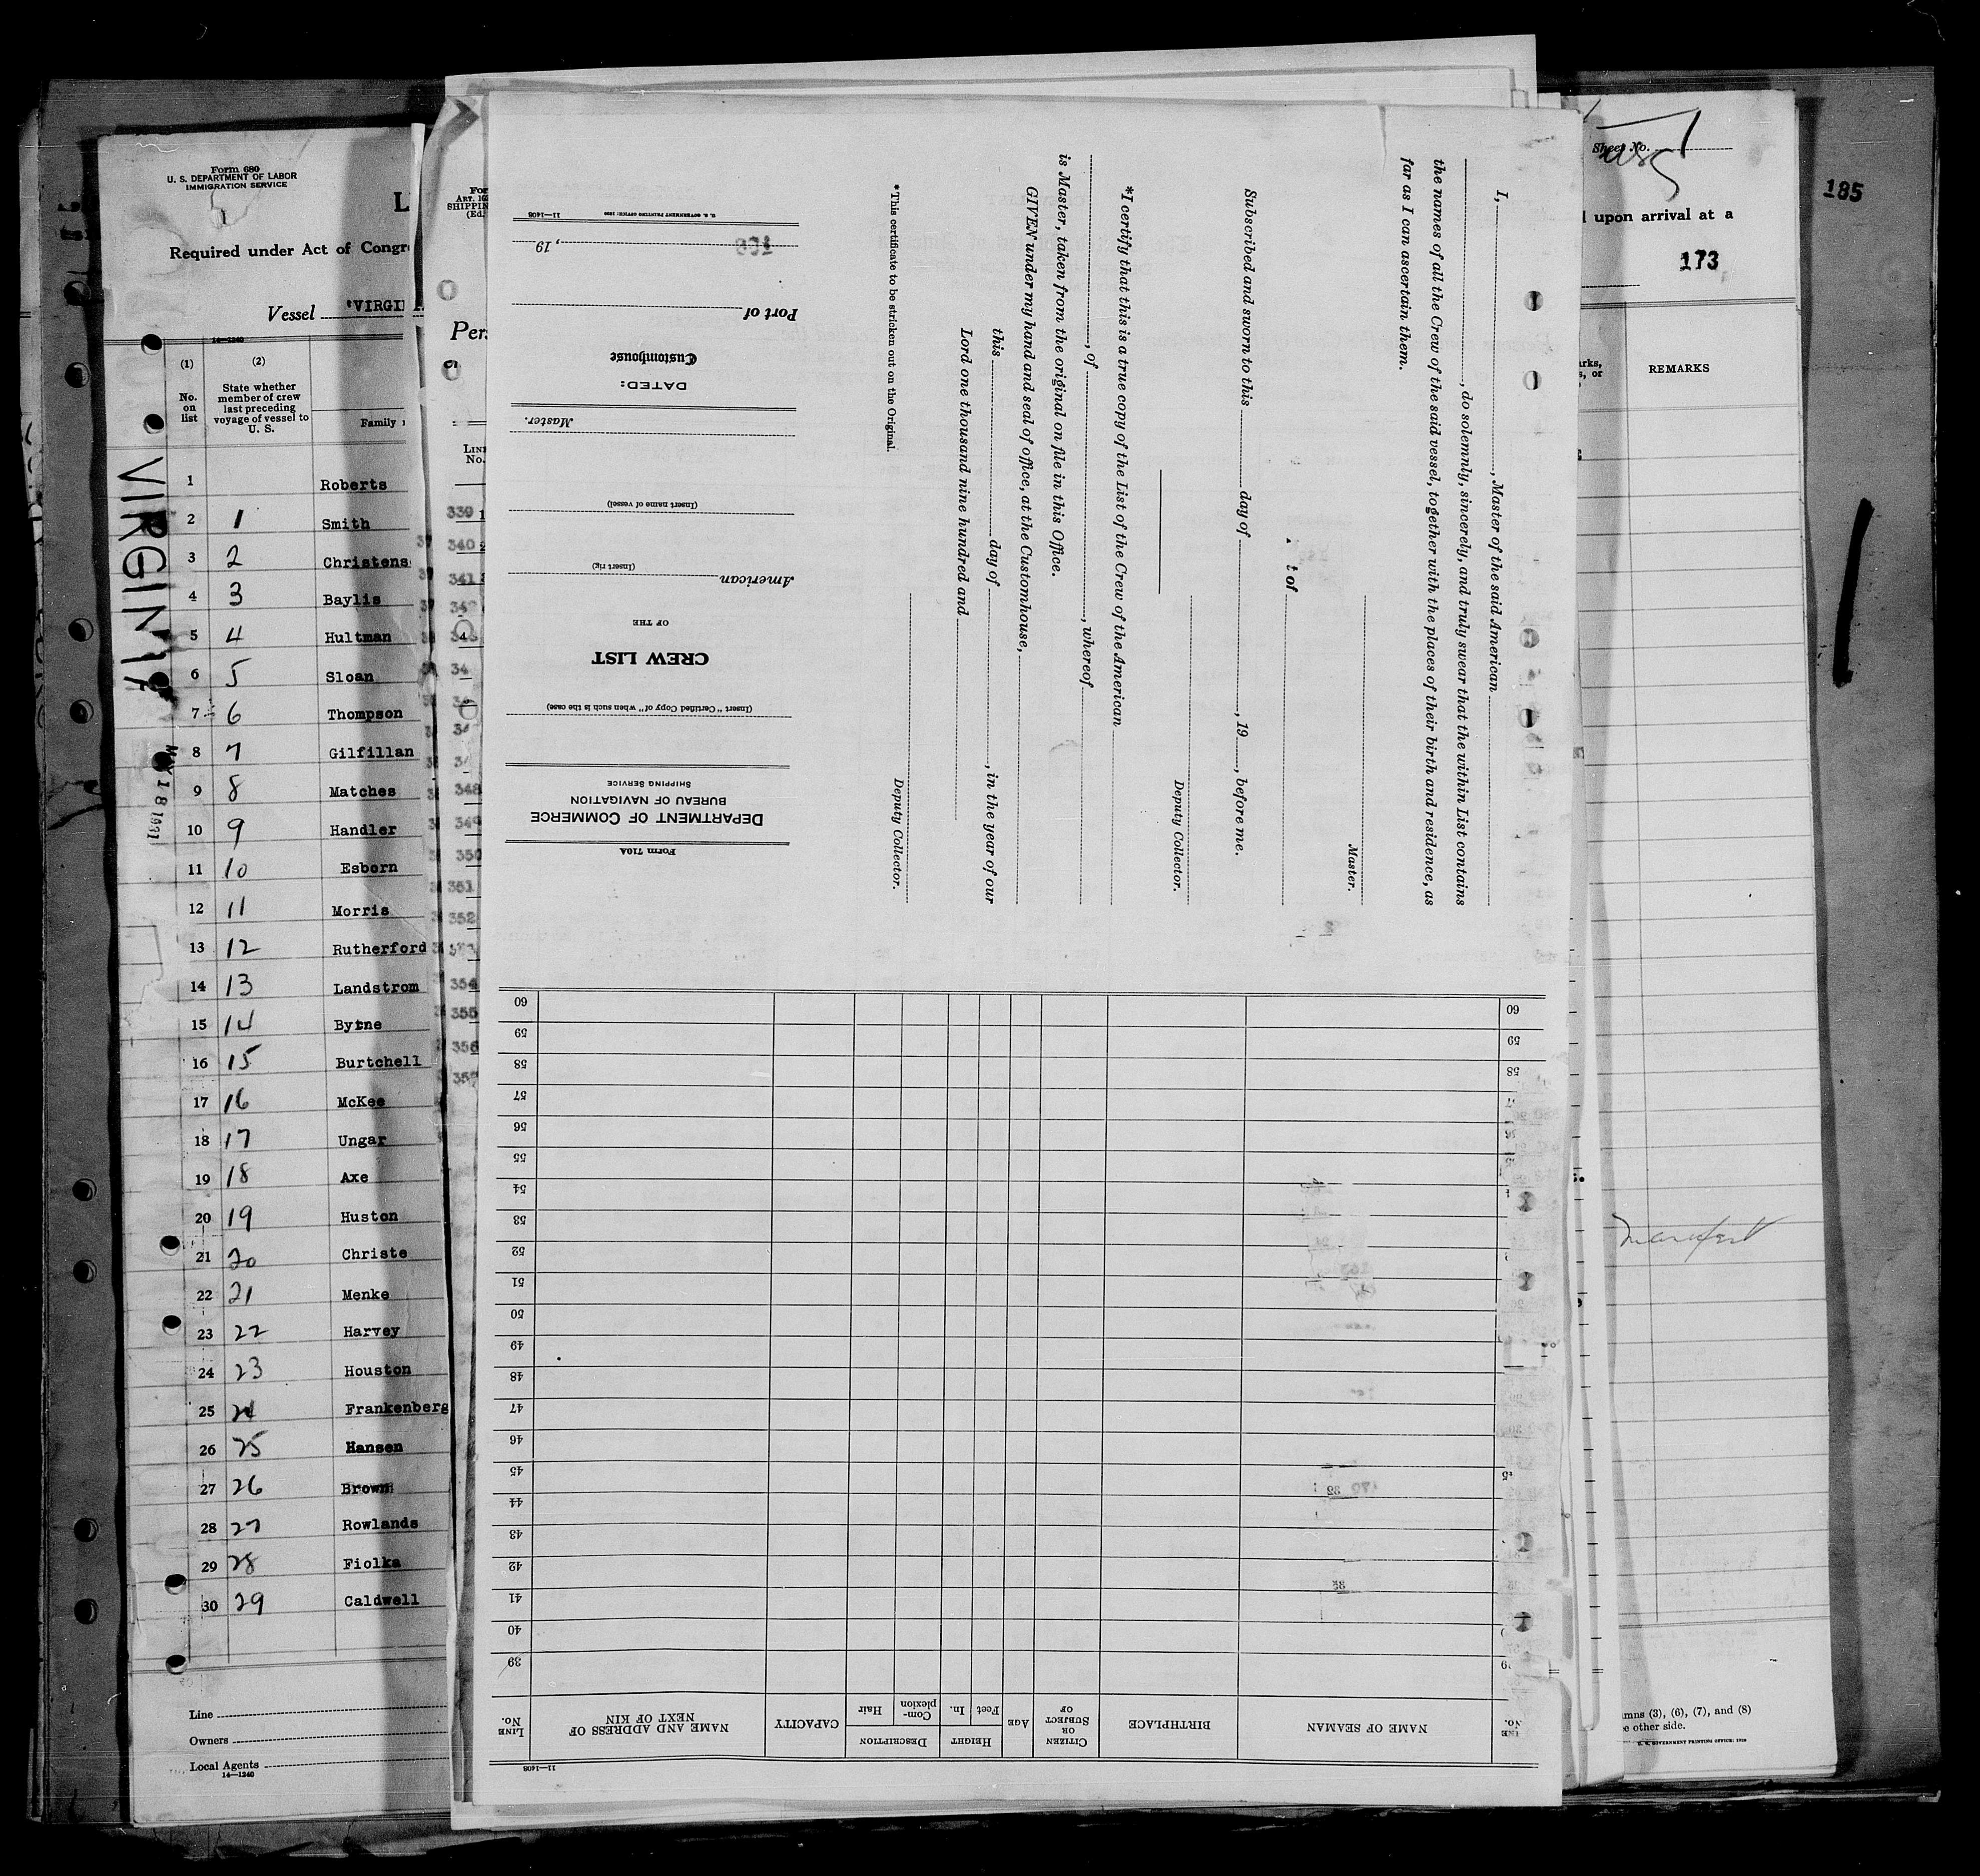 Form 680
U. S. DEPARTMENT OF LABOR
IMMIGRATION SERVICE
L
Required under Act of Congr
Vessel "VIRGI
14—1240
(1) (2)
No. on list
State whether member of crew last preceding voyage of vessel to U. S.
Family
1 Roberts
2 1 Smith
3 2 Christens
4 3 Baylis
5 4 Hultman
6 5 Sloan
7 6 Thompson
8 7 Gilfillan
9 8 Matches
10 9 Handler
11 10 Esborn
12 11 Morris
13 12 Rutherford
14 13 Landstrom
15 14 Byrne
16 15 Burtchell
17 16 McKee
18 17 Ungar
19 18 Axe
20 19 Huston
21 20 Christe
22 21 Menke
23 22 Harvey
24 23 Houston
25 24 Frankenberg
26 25 Hansen
27 26 Brown
28 27 Rowlands
29 28 Fiolka
30 29 Caldwell
Line
Owners
Local Agents
14—1240
VIRGINIA
MAY 18 1931
For
ART. 
SHIPPIN
(Ed.
Pers
LINE
No.
339
340
341
348
349
350
351
352
354
355
356
357
I, , Master of the said American
, do solemnly, sincerely, and truly swear that the within List contains
the names of all the Crew of the said vessel, together with the places of their birth and residence, as
far as I can ascertain them.
Master.
t of
Subscribed and sworn to this day of , 19 , before me.
Deputy Collector.
*I certify that this is a true copy of the List of the Crew of the American
, of , whereof
is Master, taken from the original on file in this Office.
GIVEN under my hand and seal of office, at the Customhouse,
this day of , in the year of our
Lord one thousand nine hundred and
Deputy Collector.
*This certificate to be stricken out on the Original.
Form 710A
DEPARTMENT OF COMMERCE
BUREAU OF NAVIGATION
SHIPPING SERVICE
(Insert "Certified Copy of" when such is the case)
CREW LIST
OF THE
American
(Insert rig)
(Insert name of vessel)
Master.
DATED:
Customhouse
Port of
, 19
U. S. GOVERNMENT PRINTING OFFICE: 11—1408
11—1408
LINE No.
NAME OF SEAMAN
BIRTHPLACE
CITIZEN OR SUBJECT OF
AGE
HEIGHT
Feet
In.
DESCRIPTION
Com-plexion
Hair
CAPACITY
NAME AND ADDRESS OF NEXT OF KIN
LINE No.
39
40
41
42
43
44
45
46
47
48
49
50
51
52
53
54
55
56
57
58
59
60
Sheet No. 1
upon arrival at a
173
185
REMARKS
mns (3), (6), (7), and (8)
other side.
U. S. GOVERNMENT PRINTING OFFICE: